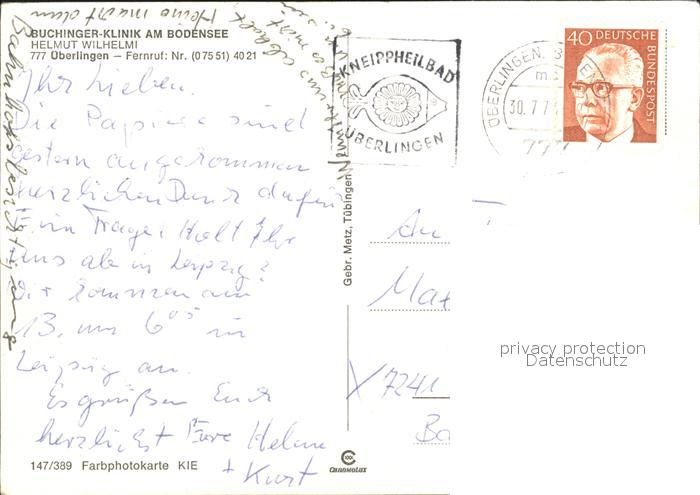 BUCHINGER-KLINIK AM BODENSEE
HELMUT WILHELMI
777 Überlingen – Fernruf: Nr. (0 75 51) 40 21
Ihr Lieben.
Die Papiere sind
gestern angekommen
herzlichen Dank dafür
Eine Frage: Holt Ihr
uns ab in Leipzig?
Wir kommen am
13. um 6 05 in
Leipzig an.
Es grüßen Euch
herzlichst Eure Helene
+ Kurt
147/389 Farbphotokarte KIE
Gebr. Metz, Tübingen
CHROMOLUX
KNEIPPHEILBAD
ÜBERLINGEN
ÜBERLINGEN,
30.7.7
777
40 DEUTSCHE
BUNDESPOST
An
X 7241
privacy protection
Datenschutz